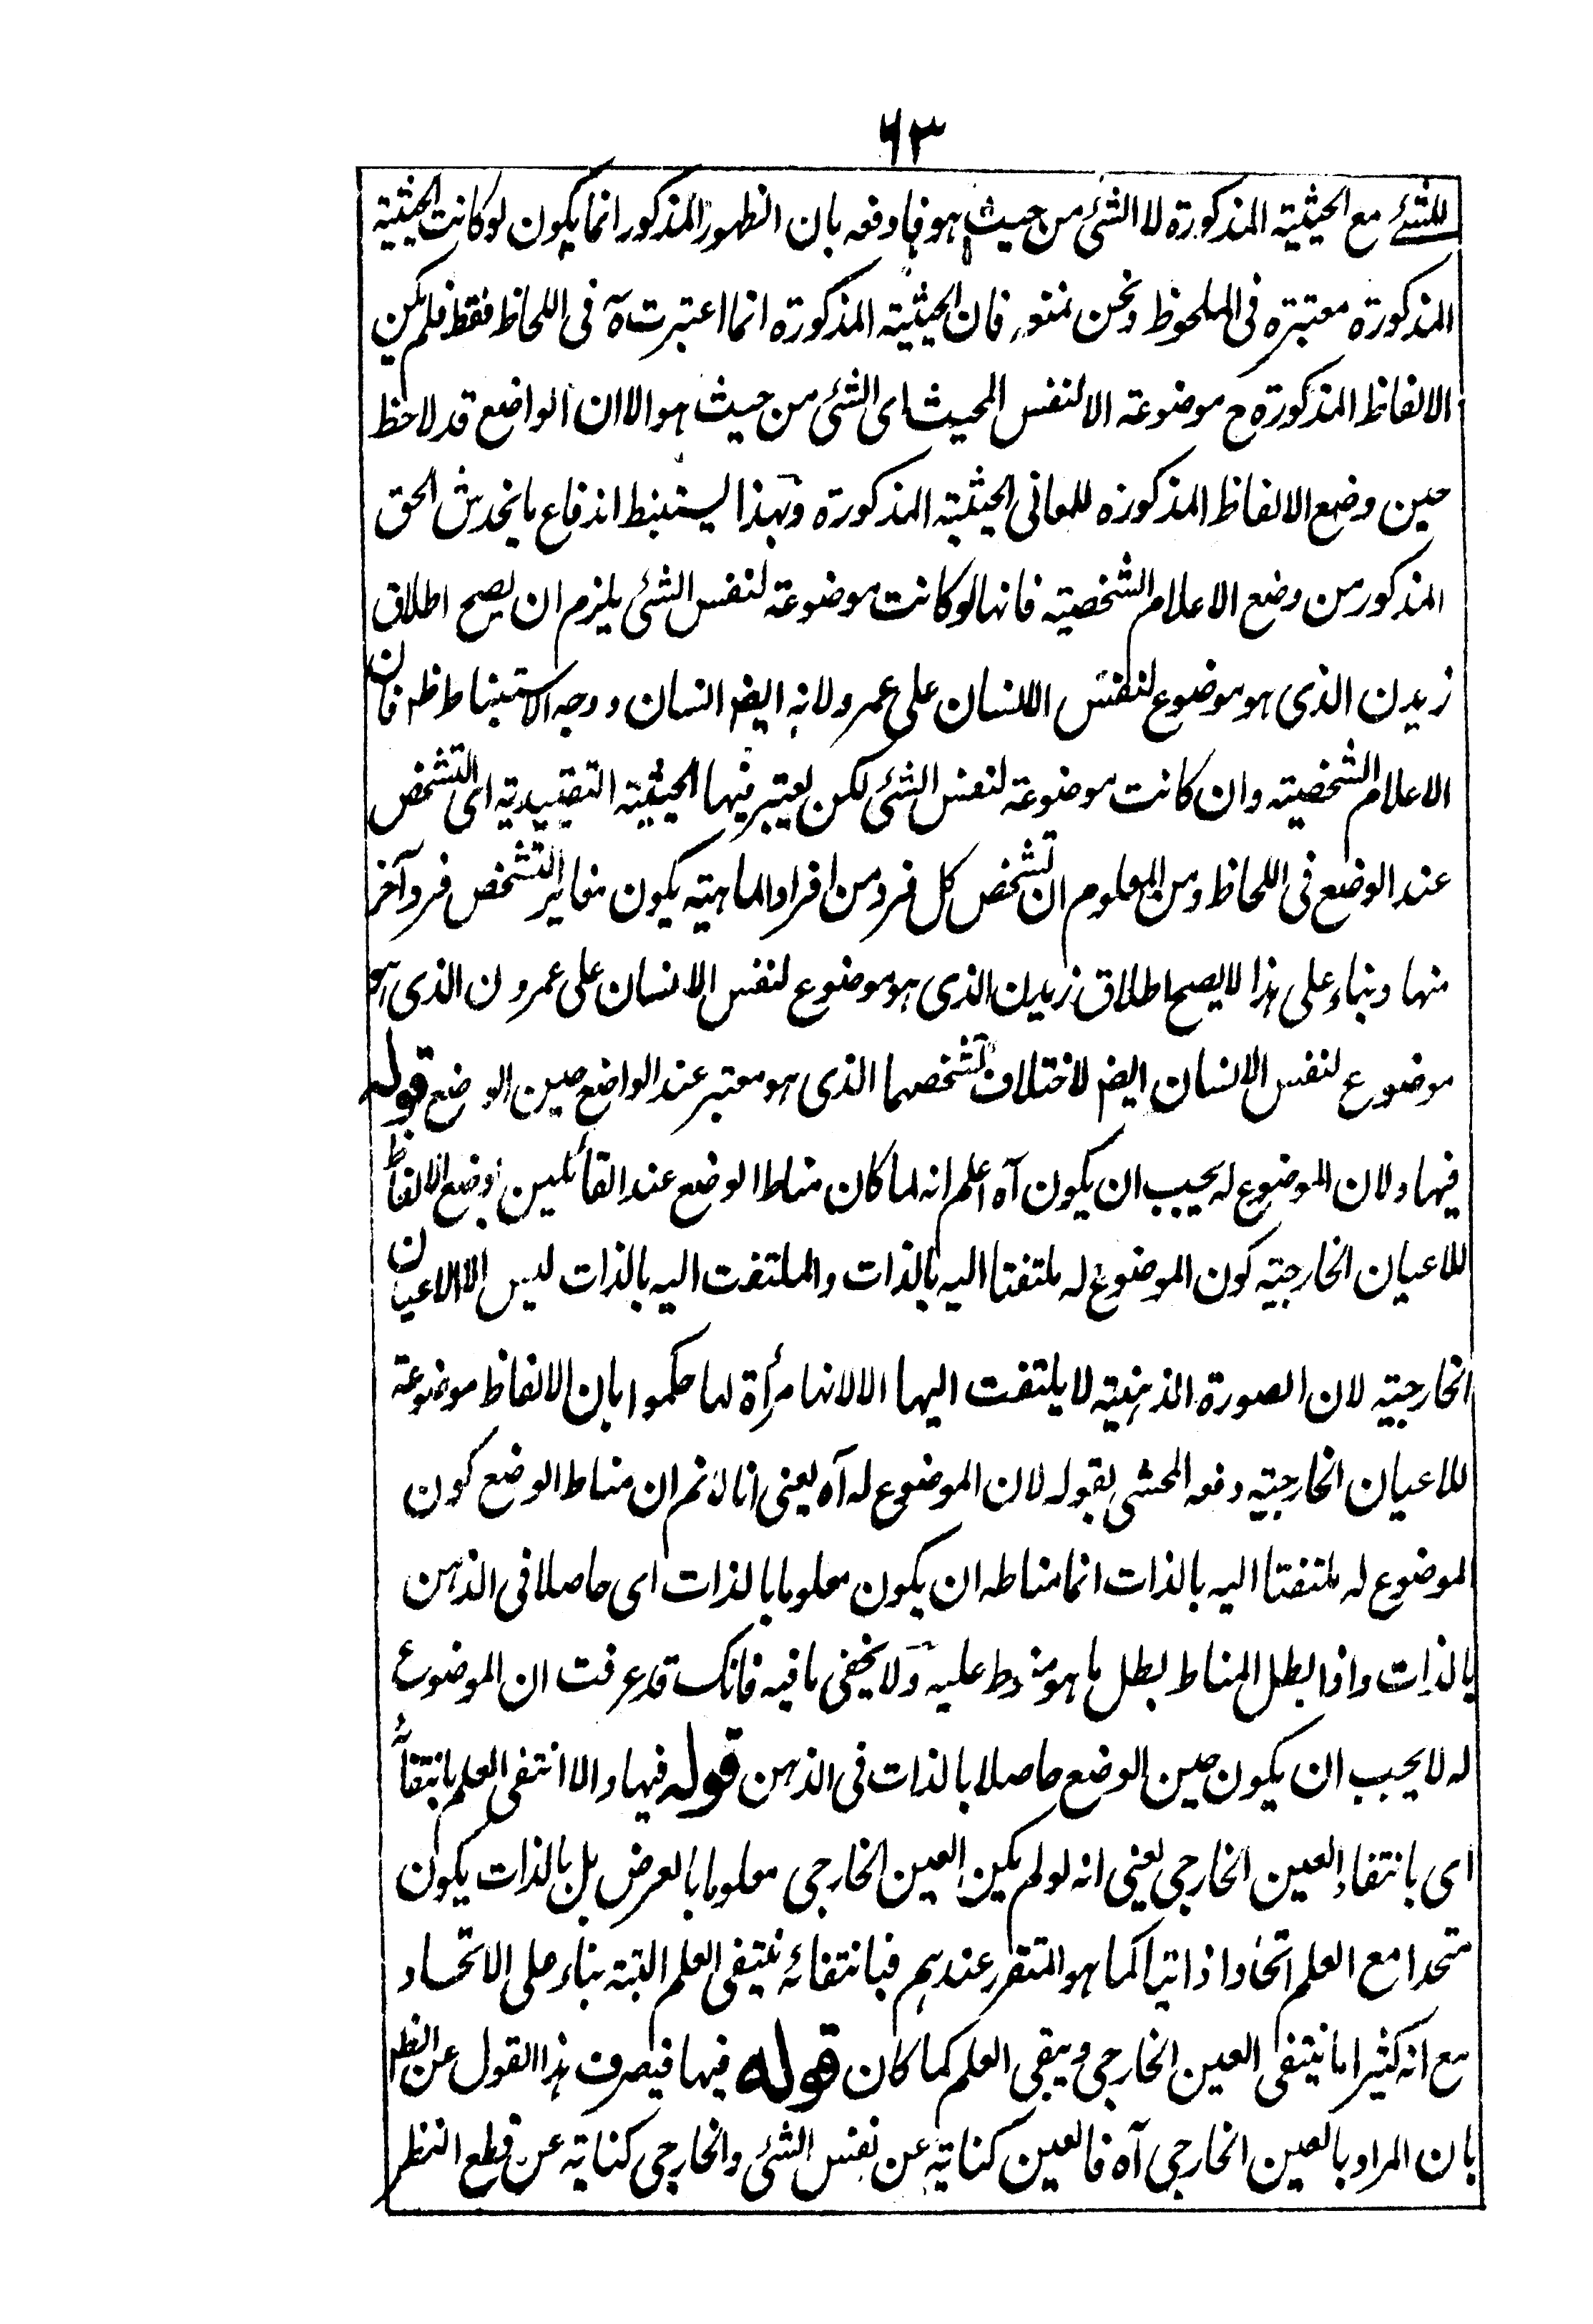 ٦٣
للشئ مع الحيثية المذكورة لا الشئ من حيث هو فادفعه بان الظهور المذكور انما يكون لو كانت الحيثية
المذكورة معتبرة فى الملحوظ ونحن نمنعه فان الحيثية المذكورة انما اعتبرت آه فى اللحاظ فقط فلم يكن
الالفاظ المذكورة ح موضوعة الا لنفس المحيث اى الشئ من حيث هو الا ان الواضع قد لاحظ
حين وضع الالفاظ المذكورة للمعانى الحيثية المذكورة وبهذا يستنبط اندفاع ما يخدش الحق
المذكور من وضع الاعلام الشخصية فانها لو كانت موضوعة لنفس الشئ يلزم ان يصح اطلاق
زيدن الذى هو موضوع لنفس الانسان على عمرو لانه ايضا انسان ووجه الاستنباط ظ فان
الاعلام الشخصية وان كانت موضوعة لنفس الشئ لكن يعتبر فيها الحيثية التقييدية اى التشخص
عند الوضع فى اللحاظ ومن المعلوم ان تشخص كل فرد من افراد الماهية يكون مغاير التشخص فرد آخر
منها وبناء على هذا لا يصح اطلاق زيدن الذى هو موضوع لنفس الانسان على عمرون الذى هو
موضوع لنفس الانسان ايضا لاختلاف تشخصهما الذى هو معتبر عند الواضع حين الوضع قوله
فيها ولان الموضوع له يجب ان يكون آه اعلم انه لما كان مناط الوضع عند القائلين بوضع الالفاظ
للاعيان الخارجية كون الموضوع له ملتفتا اليه بالذات والملتفت اليه بالذات ليس الا الاعيان
الخارجية لان الصورة الذهنية لا يلتفت اليها الا لانها مرأة لها حكموا بان الالفاظ موضوعة
للاعيان الخارجية دفعه المحشى بقوله لان الموضوع له آه يعنى انا لا نم ان مناط الوضع كون
الموضوع له ملتفتا اليه بالذات انما مناطه ان يكون معلوما بالذات اى حاصلا فى الذهن
بالذات واذا بطل المناط بطل ما هو منوط عليه ولا يخفى ما فيه فانك قد عرفت ان الموضوع
له لا يجب ان يكون حين الوضع حاصلا بالذات فى الذهن قوله فيها والا انتفى العلم بانتفائه
اى بانتفاء العين الخارجى يعنى انه لو لم يكن العين الخارجى معلوما بالعرض بل بالذات يكون
متحدا مع العلم اتحادا ذاتيا كما هو المتقرر عندهم فبانتفائه ينتفى العلم البتة بناء على الاتحاد
مع انه كثيرا ما ينتفى العين الخارجى ويبقى العلم كما كان قوله فيها فيصرف هذا القول عن الظ
بان المراد بالعين الخارجى آه فالعين كناية عن نفس الشئ والخارجى كناية عن قطع النظر